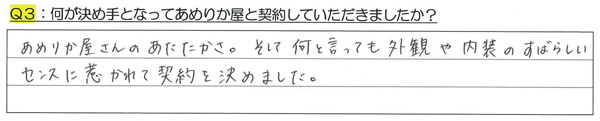 Q3:何が決め手となってあめりか屋と契約していただきましたか?
あめりか屋さんのあたたかさ。そして何と言っても外観や内装のすばらしい
センスに惹かれて契約を決めました。